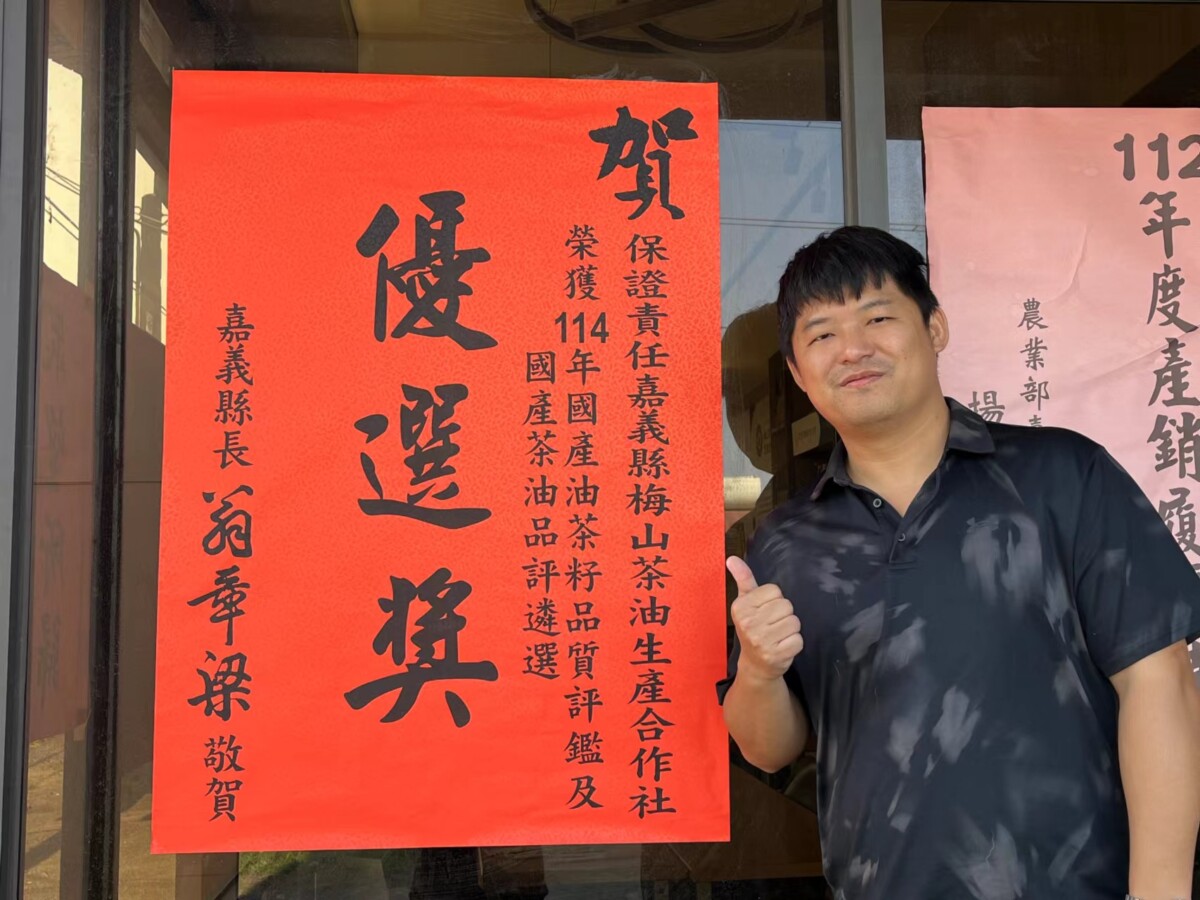 賀
保證責任嘉義縣梅山茶油生產合作社
榮獲114年國產油茶籽品質評鑑及
國產茶油品評遴選
優選獎
嘉義縣長 翁章梁 敬賀
112年度產銷履
農業部